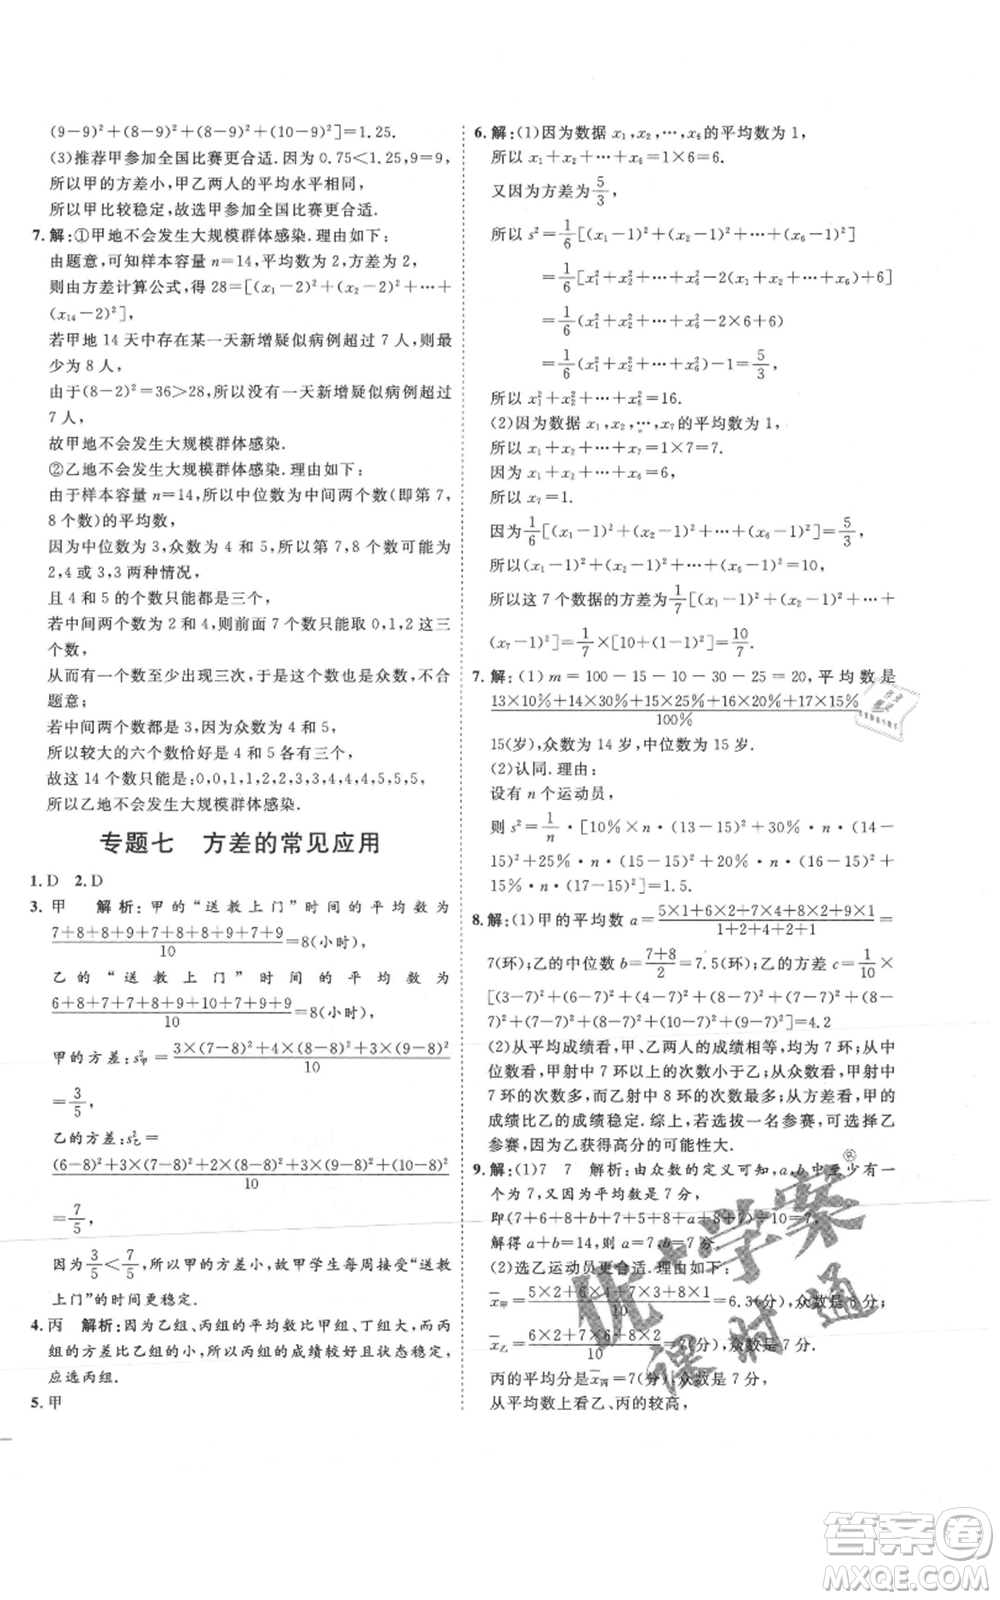 (9−9)²+(8−9)²+(9−9)²+(10−9)²]=1.25.
(3)推荐甲参加全国比赛更合适.因为 0.75<1.25,9=9,
所以甲的方差小,甲乙两人的平均水平相同,
所以甲比较稳定,故选甲参加全国比赛更合适.
7. 解:①甲地不会发生大规模群体感染.理由如下:
由题意,可知样本容量 n=14,平均数为 2,方差为 2,
则由方差计算公式,得 28=[(x₁−2)²+(x₂−2)²+⋯+
(x₁₄−2)²],
若甲地 14 天中存在某一天新增疑似病例超过 7 人,最
少为 8 人,
由于(8−2)²=36>28,所以没有一天新增疑似病例超过
7 人,
故甲地不会发生大规模群体感染.
②乙地不会发生大规模群体感染.理由如下:
由于样本容量 n=14,所以中位数为中间两个数(即第 7,
8 个数)的平均数,
因为中位数为 3,众数为 4 和 5,所以第 7,8 个数可能为
2,4 或 3,3 两种情况,
且 4 和 5 的个数只能都是三个,
若中间两个数为 2 和 4,则前面六个数有 0,1,2 这三
个数,
从而一定有某个数至少出现三次及三次以上,不符合
题意;
若中间两个数为 3 和 3,因为众数为 4 和 5,
所以较大的六个数恰好是三个 4 和三个 5,
故这 14 个数只能是:0,0,1,1,2,2,3,3,4,4,4,5,5,5,
所以乙地不会发生大规模群体感染.
专题七 方差的常见应用
1. D 2. D
3. 甲 解析:甲的“送教上门”时间的平均数为
(7+8+8+9+7+8+8+9+7+9)/10=8(小时),
乙的“送教上门”时间的平均数为
(6+8+7+7+8+9+10+7+9+9)/10=8(小时),
甲的方差:s²甲=(3×(7−8)²+4×(8−8)²+3×(9−8)²)/10
=3/5,
乙的方差:s²乙=
((6−8)²+3×(7−8)²+2×(8−8)²+3×(9−8)²+(10−8)²)/10
=7/5,
因为 3/5<7/5,所以甲的方差小,故甲学生每周接受“送教
上门”的时间更稳定.
4. 丙 解析:因为乙组、丙组的平均数比甲组、丁组大,而丙
组的方差比乙组的小,所以丙组的成绩较好且状态稳定,
应选丙组.
5. 甲
6. 解:(1)因为数据 x₁,x₂,⋯,x₆的平均数为 1,
所以 x₁+x₂+⋯+x₆=1×6=6.
又因为方差为5/3,
所以 s²=1/6[(x₁−1)²+(x₂−1)²+⋯+(x₆−1)²]
=1/6[x₁²+x₂²+⋯+x₆²−2(x₁+x₂+⋯+x₆)+6]
=1/6(x₁²+x₂²+⋯+x₆²−2×6+6)
=1/6(x₁²+x₂²+⋯+x₆²)−1=5/3,
所以 x₁²+x₂²+⋯+x₆²=16.
(2)因为数据 x₁,x₂,⋯,x₇的平均数为 1,
所以 x₁+x₂+⋯+x₇=1×7=7.
因为 x₁+x₂+⋯+x₆=6,
所以 x₇=1.
因为1/6[(x₁−1)²+(x₂−1)²+⋯+(x₆−1)²]=5/3,
所以(x₁−1)²+(x₂−1)²+⋯+(x₆−1)²=10,
所以这 7 个数据的方差为1/7[(x₁−1)²+(x₂−1)²+⋯+
(x₇−1)²]=1/7×[10+(1−1)²]=10/7.
7. 解:(1) m=100−15−10−30−25=20,平均数是
(13×10%+14×30%+15×25%+16×20%+17×15%)/100%=
15(岁),众数为 14 岁,中位数为 15 岁.
(2)认同.理由:
设有 n 名运动员,
则 s²=1/n·[10%×n·(13−15)²+30%·n·(14−
15)²+25%·n·(15−15)²+20%·n·(16−15)²+
15%·n·(17−15)²]=1.5.
8. 解:(1)甲的平均数 a=(5×1+6×2+7×4+8×2+9×1)/(1+2+4+2+1)=
7(环);乙的中位数 b=(7+8)/2=7.5(环);乙的方差 c=1/10×
[(3−7)²+(6−7)²+(4−7)²+(8−7)²+(7−7)²+(8−
7)²+(7−7)²+(8−7)²+(10−7)²+(9−7)²]=4.2
(2)从平均成绩看,甲、乙两人的成绩相等,均为 7 环;从中
位数看,甲射中 7 环以上的次数小于乙;从众数看,甲射中
7 环的次数多,而乙射中 8 环的次数多;从方差看,甲的
成绩比乙的成绩稳定.综上,若选拔一名参赛,可选择乙
参赛,因为乙获得高分的可能性大.
9. 解:(1)7 7 解析:由众数的定义可知,a,b 中至少有
一个为 7,不妨设 a 是 7 分,
即(7+6+8+b+7+5+8+a+8+7)÷10=7,
解得 a+b=14,所以 a=7,b=7.
(2)选乙运动员更合适.理由如下:
x̄甲=(5×2+6×4+7×3+8×1)/10=6.3(分),众数是 6 分,
x̄乙=(6×2+7×6+8×2)/10=7(分),众数是 7 分.
丙的平均分是 x̄丙=7(分),众数是 7 分,
从平均数上看乙、丙的较高,
优+学案
课时通
®
答案卷
MXQE.COM